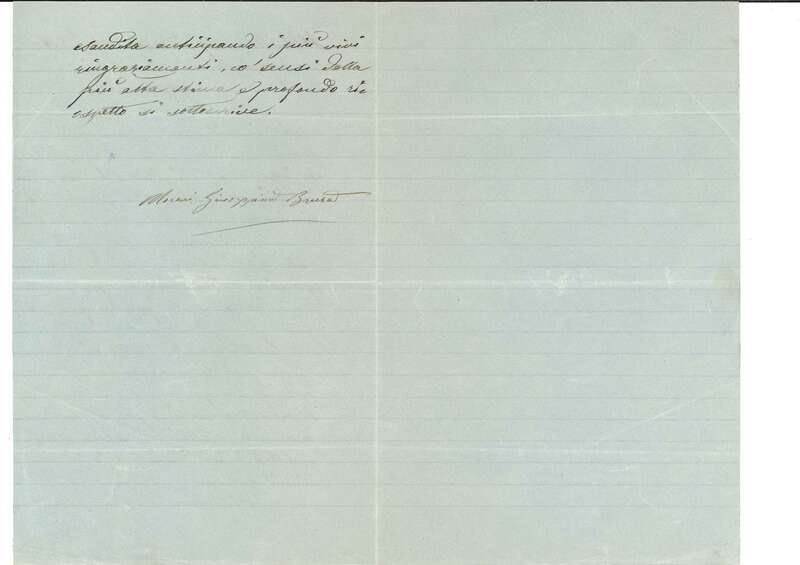 esaudita anticipando i più vivi
ringraziamenti, co' sensi della
più alta stima e profondo ri=
=spetto si sottoscrive.
Giuseppina Brusa